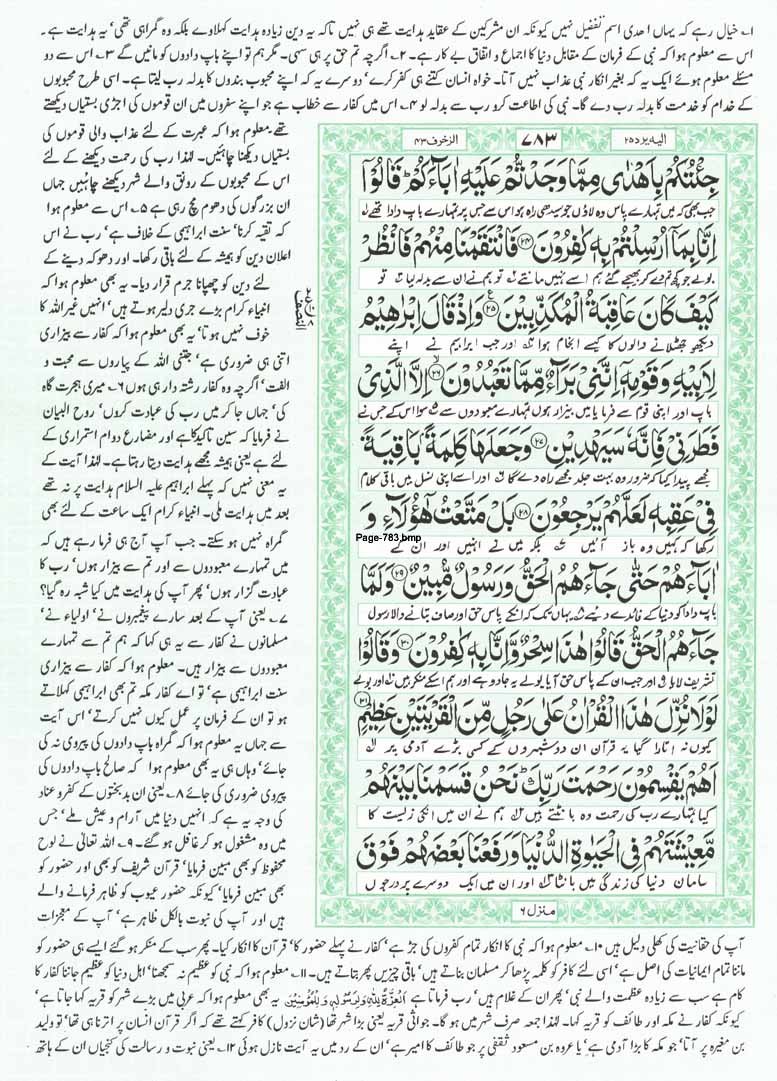 ۱۔ خیال رہے کہ یہاں اھدی اسم تفضیل نہیں کیونکہ ان مشرکین کے عقاید ہدایت تھے ہی نہیں تاکہ یہ دین زیادہ ہدایت کہلاوے بلکہ وہ گمراہی تھی' یہ ہدایت ہے۔
اس سے معلوم ہوا کہ نبی کے فرمان کے مقابل دنیا کا اجماع و اتفاق بے کار ہے۔ ۲۔ اگرچہ تم حق پر ہی سہی۔ مگر ہم تو اپنے باپ دادوں کو مانیں گے ۳۔ اس سے دو
مسئلے معلوم ہوئے ایک یہ کہ بغیر انکار نبی عذاب نہیں آتا۔ خواہ انسان کتنے ہی کفر کرے' دوسرے یہ کہ اپنے محبوب بندوں کا بدلہ رب لیتا ہے۔ اسی طرح محبوبوں
کے خدام کو خدمت کا بدلہ رب دے گا۔ نبی کی اطاعت کرو رب سے بدلہ لو ۴۔ اس میں کفار سے خطاب ہے جو اپنے سفروں میں ان قوموں کی اجڑی بستیاں دیکھتے
الیہ یردہ ۲۵
۷۸۳
الزخرف ۴۳
جِئْتُكُمْ بِاَهْدٰى مِمَّا وَجَدْتُّمْ عَلَيْهِ اٰبَآءَكُمْ ؕ قَالُوْۤا
جب بھی کہ میں تمہارے پاس وہ لاؤں جو سیدھی راہ ہو اس سے جس پر تمہارے باپ دادا تھے
اِنَّا بِمَاۤ اُرْسِلْتُمْ بِهٖ كٰفِرُوْنَ ۲۴ فَانْتَقَمْنَا مِنْهُمْ فَانْظُرْ
بولے جو کچھ تم دے کر بھیجے گئے ہم اسے نہیں مانتے تو ہم نے ان سے بدلہ لیا تو
كَيْفَ كَانَ عَاقِبَةُ الْمُكَذِّبِيْنَ ۲۵ وَاِذْ قَالَ اِبْرٰهِيْمُ
دیکھو جھٹلانے والوں کا کیسے انجام ہوا اور جب ابراہیم نے اپنے
لِاَبِيْهِ وَقَوْمِهٖۤ اِنَّنِيْ بَرَآءٌ مِّمَّا تَعْبُدُوْنَ ۲۶ اِلَّا الَّذِيْ
باپ اور اپنی قوم سے فرمایا میں بیزار ہوں تمہارے معبودوں سے سوا اس کے جس نے
فَطَرَنِيْ فَاِنَّهٗ سَيَهْدِيْنِ ۲۷ وَجَعَلَهَا كَلِمَةًۢ بَاقِيَةً
مجھے پیدا کیا کہ ضرور وہ بہت جلد مجھے راہ دے گا اور اسے اپنی نسل میں باقی کلام
فِيْ عَقِبِهٖ لَعَلَّهُمْ يَرْجِعُوْنَ ۲۸ بَلْ مَتَّعْتُ هٰۤؤُلَآءِ وَ
رکھا کہ کہیں وہ باز آئیں بلکہ میں نے انہیں اور ان کے
Page-783.bmp
اٰبَآءَهُمْ حَتّٰى جَآءَهُمُ الْحَقُّ وَرَسُوْلٌ مُّبِيْنٌ ۲۹ وَلَمَّا
باپ دادا کو دنیا کے فائدے دیئے یہاں تک کہ انکے پاس حق اور صاف بتانے والا رسول
جَآءَهُمُ الْحَقُّ قَالُوْا هٰذَا سِحْرٌ وَّاِنَّا بِهٖ كٰفِرُوْنَ ۳۰ وَقَالُوْا
تشریف لایا اور جب ان کے پاس حق آیا بولے یہ جادو ہے اور ہم اسکے منکر ہیں اور بولے
لَوْلَا نُزِّلَ هٰذَا الْقُرْاٰنُ عَلٰى رَجُلٍ مِّنَ الْقَرْيَتَيْنِ عَظِيْمٍ ۳۱
کیوں نہ اتارا گیا یہ قرآن ان دو شہروں کے کسی بڑے آدمی پر
اَهُمْ يَقْسِمُوْنَ رَحْمَتَ رَبِّكَ ؕ نَحْنُ قَسَمْنَا بَيْنَهُمْ
کیا تمہارے رب کی رحمت وہ بانٹتے ہیں ہم نے ان میں انکی زیست کا
مَّعِيْشَتَهُمْ فِي الْحَيٰوةِ الدُّنْيَا وَرَفَعْنَا بَعْضَهُمْ فَوْقَ
سامان دنیا کی زندگی میں بانٹا اور ان میں ایک دوسرے پر درجوں
منزل ۶
النصف
تھے معلوم ہوا کہ عبرت کے لئے عذاب والی قوموں کی
بستیاں دیکھنا چاہئیں۔ لہٰذا رب کی رحمت دیکھنے کے لئے
اس کے محبوبوں کے رونق والے شہر دیکھنے چاہئیں جہاں
ان بزرگوں کی دھوم مچ رہی ہے ۵۔ اس سے معلوم ہوا
کہ تقیہ کرنا' سنت ابراہیمی کے خلاف ہے' رب نے اس
اعلان دین کو ہمیشہ کے لئے باقی رکھا۔ اور دھوکہ دینے کے
لئے دین کو چھپانا جرم قرار دیا۔ یہ بھی معلوم ہوا کہ
انبیاء کرام بڑے جری دلیر ہوتے ہیں' انہیں غیر اللہ کا
خوف نہیں ہوتا' یہ بھی معلوم ہوا کہ کفار سے بیزاری
اتنی ہی ضروری ہے' جتنی اللہ کے پیاروں سے محبت و
الفت' اگرچہ وہ کفار رشتہ دار ہی ہوں ۶۔ میری ہجرت گاہ
کی' جہاں جا کر میں رب کی عبادت کروں' روح البیان
نے فرمایا کہ سین تاکید کا ہے اور مضارع دوام استمراری کے
لئے ہے یعنی ہمیشہ مجھے ہدایت دیتا رہتا ہے۔ لہٰذا آیت کے
یہ معنی نہیں کہ پہلے ابراہیم علیہ السلام ہدایت پر نہ تھے
بعد میں ہدایت ملی۔ انبیاء کرام ایک ساعت کے لئے بھی
گمراہ نہیں ہو سکتے۔ جب آپ آج ہی فرما رہے ہیں کہ
میں تمہارے معبودوں سے اور تم سے بیزار ہوں' رب کا
عبادت گزار ہوں' پھر آپ کی ہدایت میں کیا شبہ رہ گیا؟
۷۔ یعنی آپ کے بعد سارے پیغمبروں نے' اولیاء نے'
مسلمانوں نے کفار سے یہ ہی کہا کہ ہم تم سے تمہارے
معبودوں سے بیزار ہیں۔ معلوم ہوا کہ کفار سے بیزاری
سنت ابراہیمی ہے' تو اے کفار مکہ تم بھی ابراہیمی کہلاتے
ہو تو ان کے فرمان پر عمل کیوں نہیں کرتے' اس آیت
سے جہاں یہ معلوم ہوا کہ گمراہ باپ دادوں کی پیروی نہ کی
جائے' وہاں ہی یہ بھی معلوم ہوا کہ صالح باپ دادوں کی
پیروی ضروری کی جائے ۸۔ یعنی ان بدبختوں کے کفر و عناد
کی وجہ یہ ہے کہ انہیں دنیا میں آرام و عیش ملے' جس
میں وہ مشغول ہو کر غافل ہو گئے۔ ۹۔ اللہ تعالیٰ نے لوح
محفوظ کو بھی مبین فرمایا' قرآن شریف کو بھی اور حضور کو
بھی مبین فرمایا' کیونکہ حضور عیوب کو ظاہر فرمانے والے
ہیں اور آپ کی نبوت بالکل ظاہر ہے' آپ کے معجزات
آپ کی حقانیت کی کھلی دلیل ہیں ۱۰۔ معلوم ہوا کہ نبی کا انکار تمام کفروں کی جڑ ہے' کفار نے پہلے حضور کا' قرآن کا انکار کیا۔ پھر سب کے منکر ہو گئے ایسے ہی حضور کو
ماننا تمام ایمانیات کی اصل ہے' اسی لئے کافر کو کلمہ پڑھا کر مسلمان بناتے ہیں' باقی چیزیں پھر بتاتے ہیں۔ ۱۱۔ معلوم ہوا کہ نبی کو عظیم نہ سمجھنا' اہل دنیا کو عظیم جاننا کفار کا
کام ہے سب سے زیادہ عظمت والے نبی' پھر ان کے غلام ہیں' رب فرماتا ہے الْعِزَّةُ لِلّٰهِ وَلِرَسُوْلِهٖ وَلِلْمُؤْمِنِيْنَ یہ بھی معلوم ہوا کہ عربی میں بڑے شہر کو قریہ کہا جاتا ہے'
کیونکہ کفار نے مکہ اور طائف کو قریہ کہا۔ لہٰذا جمعہ صرف شہر میں ہو گا۔ جواثی قریہ یعنی بڑا شہر تھا (شان نزول) کافر کہتے تھے کہ اگر قرآن انسان پر اترنا ہی تھا' تو ولید
بن مغیرہ پر آتا' جو مکہ کا بڑا آدمی ہے' یا عروہ بن مسعود ثقفی پر جو طائف کا امیر ہے' ان کے رد میں یہ آیت نازل ہوئی ۱۲۔ یعنی نبوت و رسالت کی کنجیاں ان کے ہاتھ